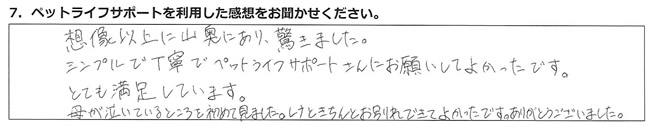 7．ペットライフサポートを利用した感想をお聞かせください。
想像以上に山奥にあり、驚きました。
シンプルで丁寧でペットライフサポートさんにお願いしてよかったです。
とても満足しています。
母が泣いているところを初めて見ました。レナときちんとお別れできてよかったです。ありがとうございました。